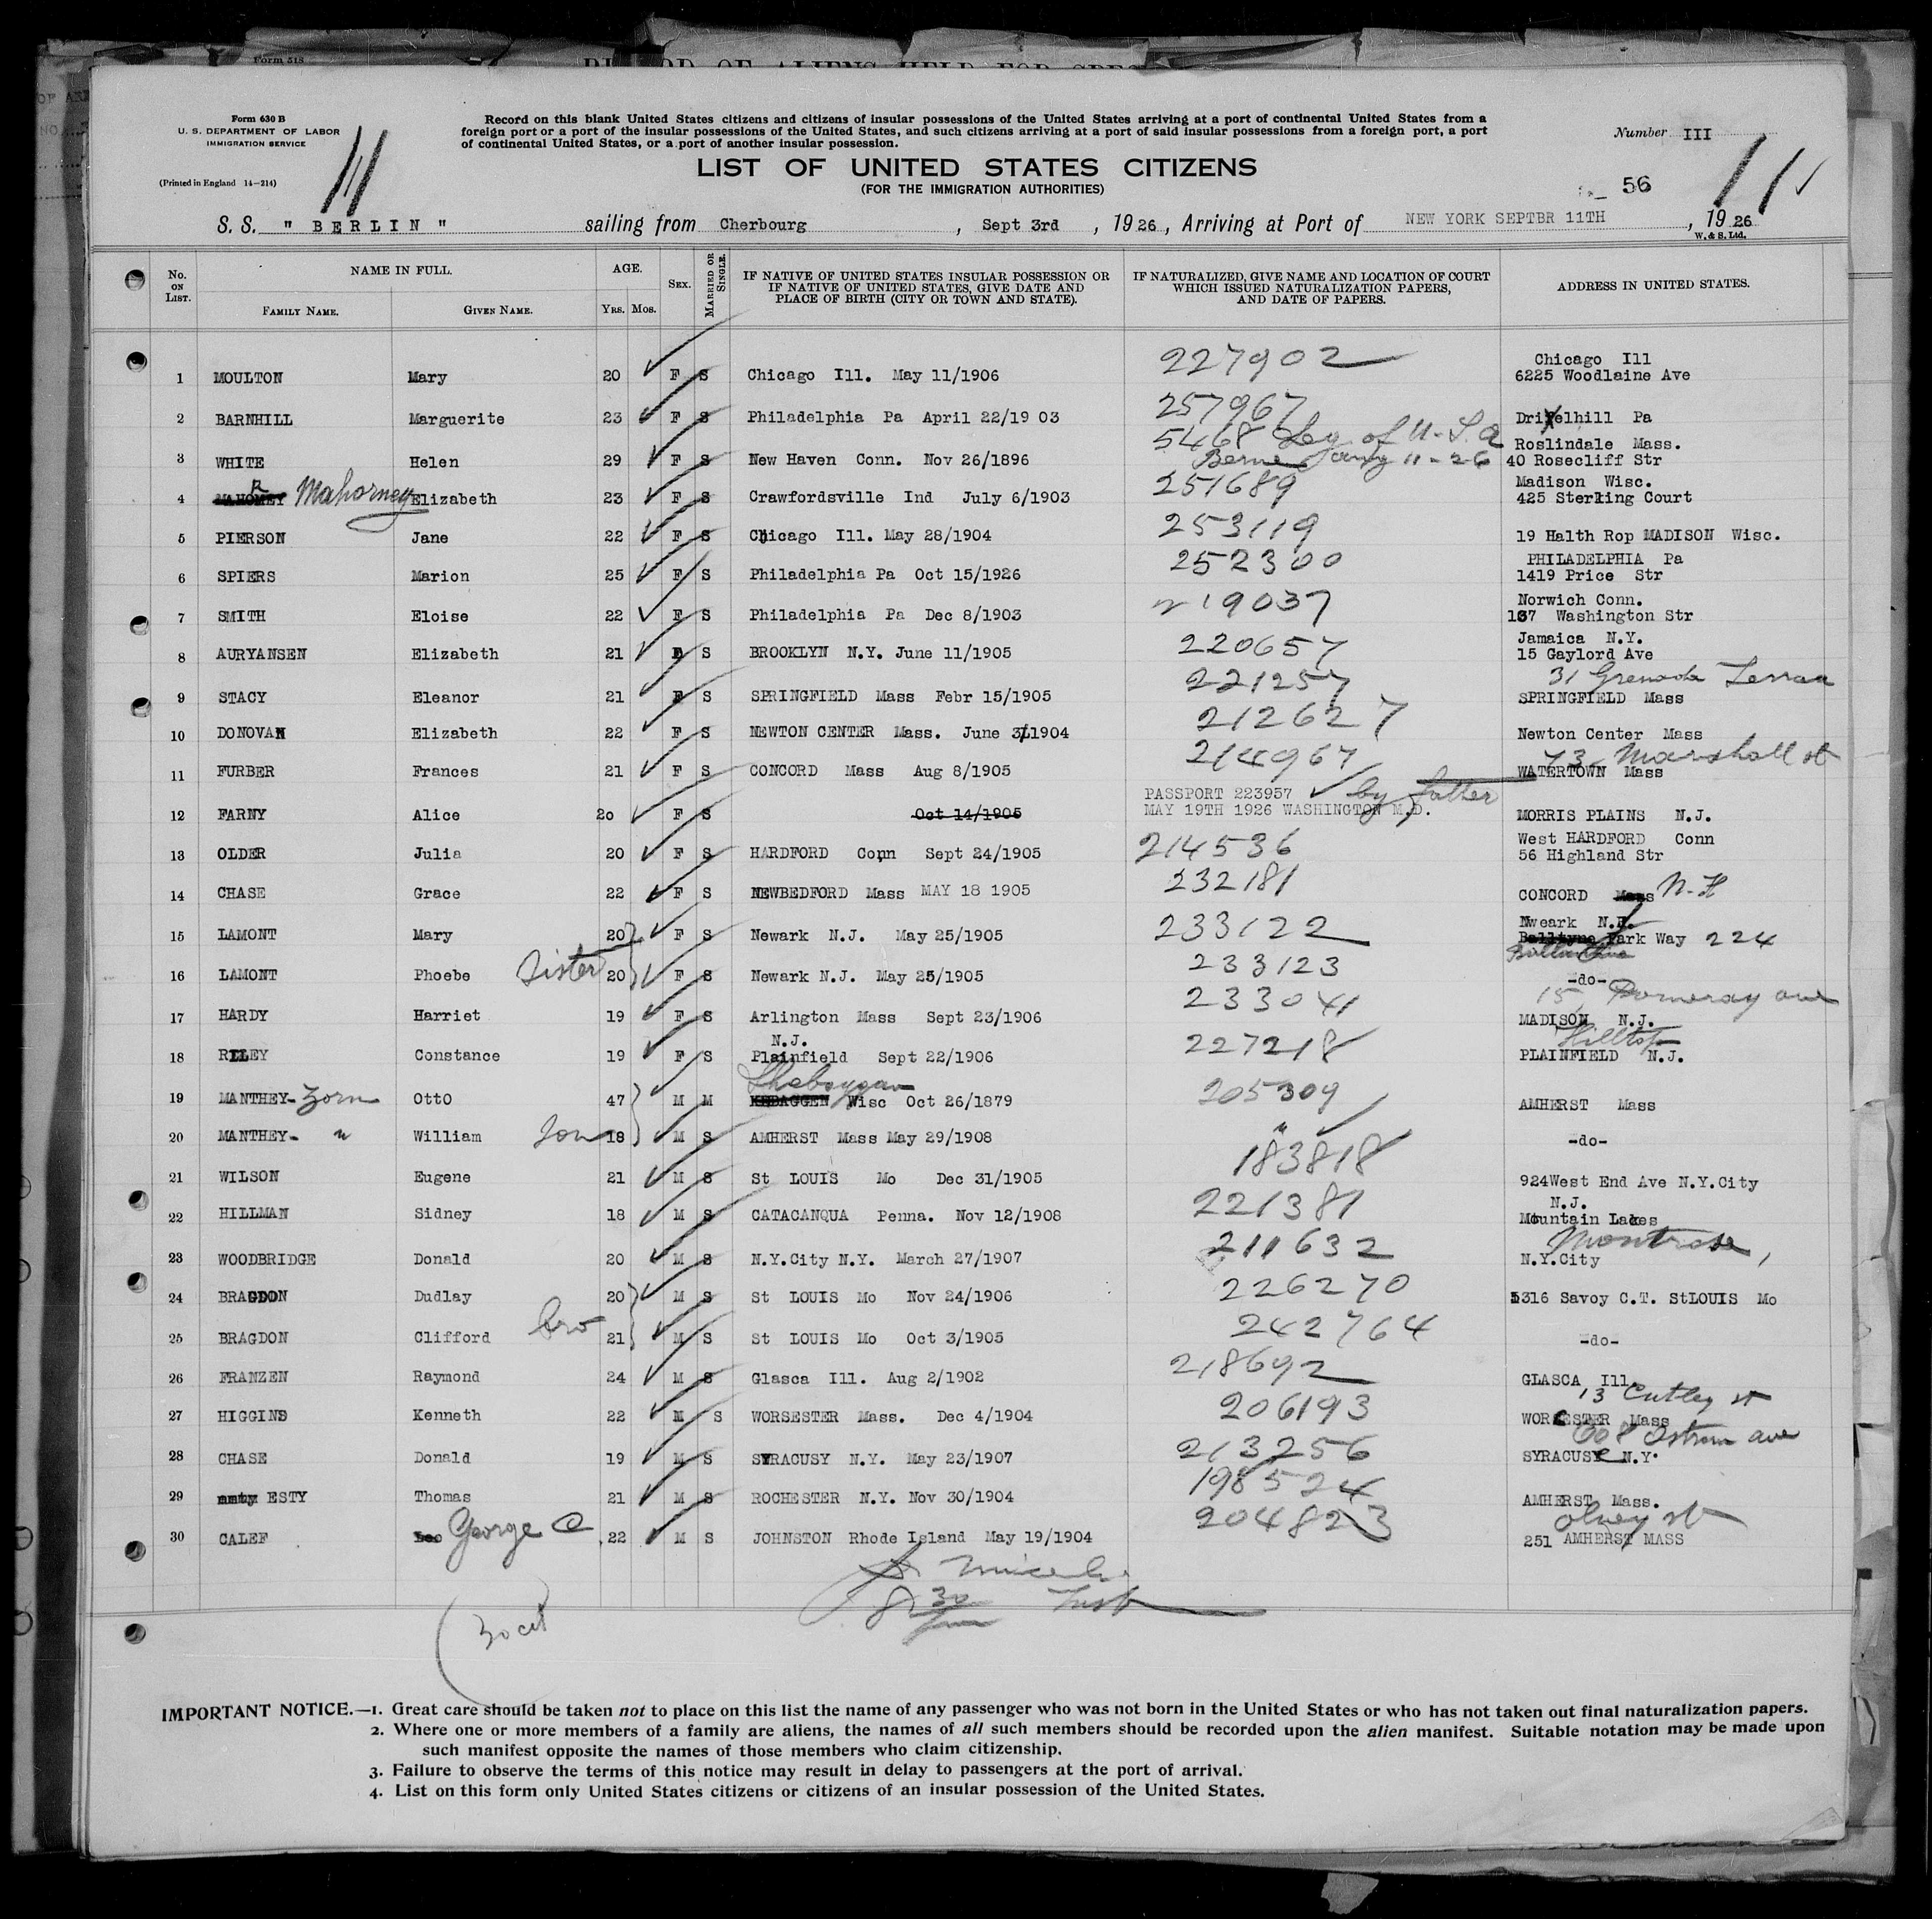 Form 518
RECORD OF ALIENS HELD FOR SPEC
Form 630 B
U. S. DEPARTMENT OF LABOR
IMMIGRATION SERVICE
(Printed in England 14-214)
Record on this blank United States citizens and citizens of insular possessions of the United States arriving at a port of continental United States from a
foreign port or a port of the insular possessions of the United States, and such citizens arriving at a port of said insular possessions from a foreign port, a port
of continental United States, or a port of another insular possession.
LIST OF UNITED STATES CITIZENS
(FOR THE IMMIGRATION AUTHORITIES)
Number III
56
111
11
S. S. " BERLIN " sailing from Cherbourg , Sept 3rd , 1926 , Arriving at Port of NEW YORK SEPTBR 11TH , 1926
W. & S. Ltd.
No. ON LIST. NAME IN FULL. AGE. SEX. MARRIED OR SINGLE. IF NATIVE OF UNITED STATES INSULAR POSSESSION OR IF NATIVE OF UNITED STATES, GIVE DATE AND PLACE OF BIRTH (CITY OR TOWN AND STATE). IF NATURALIZED, GIVE NAME AND LOCATION OF COURT WHICH ISSUED NATURALIZATION PAPERS, AND DATE OF PAPERS. ADDRESS IN UNITED STATES.
FAMILY NAME. GIVEN NAME. YRS. MOS.
1 MOULTON Mary 20 F S Chicago Ill. May 11/1906 227902 Chicago Ill 6225 Woodlaine Ave
2 BARNHILL Marguerite 23 F S Philadelphia Pa April 22/19 03 257967 Drixelhill Pa
3 WHITE Helen 29 F S New Haven Conn. Nov 26/1896 5468 Leg of U.S.A Berne Jany 11-26 Roslindale Mass. 40 Rosecliff Str
4 MAHOMEY Mahorney Elizabeth 23 F S Crawfordsville Ind July 6/1903 251689 Madison Wisc. 425 Sterling Court
5 PIERSON Jane 22 F S Chicago Ill. May 28/1904 253119 19 Halth Rop MADISON Wisc.
6 SPIERS Marion 25 F S Philadelphia Pa Oct 15/1926 252300 PHILADELPHIA Pa 1419 Price Str
7 SMITH Eloise 22 F S Philadelphia Pa Dec 8/1903 219037 Norwich Conn. 167 Washington Str
8 AURYANSEN Elizabeth 21 S BROOKLYN N.Y. June 11/1905 220657 Jamaica N.Y. 15 Gaylord Ave
9 STACY Eleanor 21 F S SPRINGFIELD Mass Febr 15/1905 221257 31 Grenada Terrace SPRINGFIELD Mass
10 DONOVAN Elizabeth 22 F S NEWTON CENTER Mass. June 3/1904 212627 Newton Center Mass
11 FURBER Frances 21 F S CONCORD Mass Aug 8/1905 214967 73 Marshall st WATERTOWN Mass
12 FARNY Alice 20 F S Oct 14/1905 PASSPORT 223957 by father MAY 19TH 1926 WASHINGTON M.D. MORRIS PLAINS N.J.
13 OLDER Julia 20 F S HARDFORD Conn Sept 24/1905 214536 West HARDFORD Conn 56 Highland Str
14 CHASE Grace 22 F S NEWBEDFORD Mass MAY 18 1905 232181 CONCORD Mass N-H
15 LAMONT Mary 20 F S Newark N.J. May 25/1905 233122 Nweark N.J. Balltyne Park Way 224
16 LAMONT Phoebe Sister 20 F S Newark N.J. May 25/1905 233123 -do-
17 HARDY Harriet 19 F S Arlington Mass Sept 23/1906 233041 15 Pomeray ave MADISON N.J.
18 RILEY Constance 19 F S N.J. Plainfield Sept 22/1906 227218 Hilltop PLAINFIELD N.J.
19 MANTHEY-Zorn Otto 47 M M Sheboygan KEBAGGEN Wisc Oct 26/1879 205309 AMHERST Mass
20 MANTHEY- " William Son 18 M S AMHERST Mass May 29/1908 " -do-
21 WILSON Eugene 21 M S St LOUIS Mo Dec 31/1905 183818 924West End Ave N.Y.City
22 HILLMAN Sidney 18 M S CATACANQUA Penna. Nov 12/1908 221381 N.J. Mountain Lakes
23 WOODBRIDGE Donald 20 M S N.Y.City N.Y. March 27/1907 211632 Montrose, N.Y.City
24 BRAGDON Dudlay 20 M S St LOUIS Mo Nov 24/1906 226270 5316 Savoy C.T. StLOUIS Mo
25 BRAGDON Clifford bro 21 M S St LOUIS Mo Oct 3/1905 242764 -do-
26 FRANZEN Raymond 24 M S Glasca Ill. Aug 2/1902 218692 GLASCA Ill.
27 HIGGINS Kenneth 22 M S WORSESTER Mass. Dec 4/1904 206193 13 Cutley st WORCESTER Mass
28 CHASE Donald 19 M S SYRACUSY N.Y. May 23/1907 213256 608 Ostrom ave SYRACUSE N.Y.
29 ESTY Thomas 21 M S ROCHESTER N.Y. Nov 30/1904 198524 AMHERST Mass.
30 CALEF Leo George C 22 M S JOHNSTON Rhode Island May 19/1904 204823 Olney st 251 AMHERST MASS
30 cit
30
IMPORTANT NOTICE.—1. Great care should be taken not to place on this list the name of any passenger who was not born in the United States or who has not taken out final naturalization papers.
2. Where one or more members of a family are aliens, the names of all such members should be recorded upon the alien manifest. Suitable notation may be made upon
such manifest opposite the names of those members who claim citizenship.
3. Failure to observe the terms of this notice may result in delay to passengers at the port of arrival.
4. List on this form only United States citizens or citizens of an insular possession of the United States.